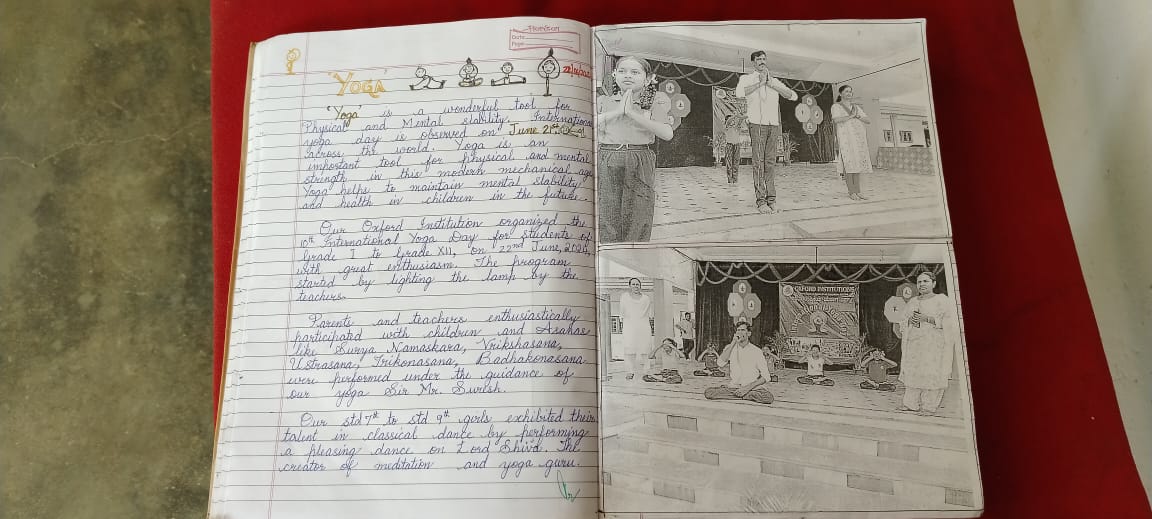 Date
Page
'YOGA'
'Yoga' is a wonderful tool for
Physical and Mental stability. International
yoga day is observed on June 21st
across the world. Yoga is an
important tool for physical and mental
strength in this modern mechanical age
Yoga helps to maintain mental stability
and health in children in the future.
Our Oxford Institution organized the
10th International Yoga Day for students of
Grade I to Grade XII, on 22nd June, 2024,
with great enthusiasm. The program
started by lighting the lamp by the
teachers.
Parents and teachers enthusiastically
participated with children and Asanas
like Surya Namaskara, Vrikshasana,
Ustrasana, Trikonasana, Badhakonasana
were performed under the guidance of
our yoga Sir Mr. Suresh.
Our std 7th to std 9th girls exhibited their
talent in classical dance by performing
a pleasing dance on Lord Shiva. The
creator of meditation and yoga guru.
OXFORD INSTITUTIONS